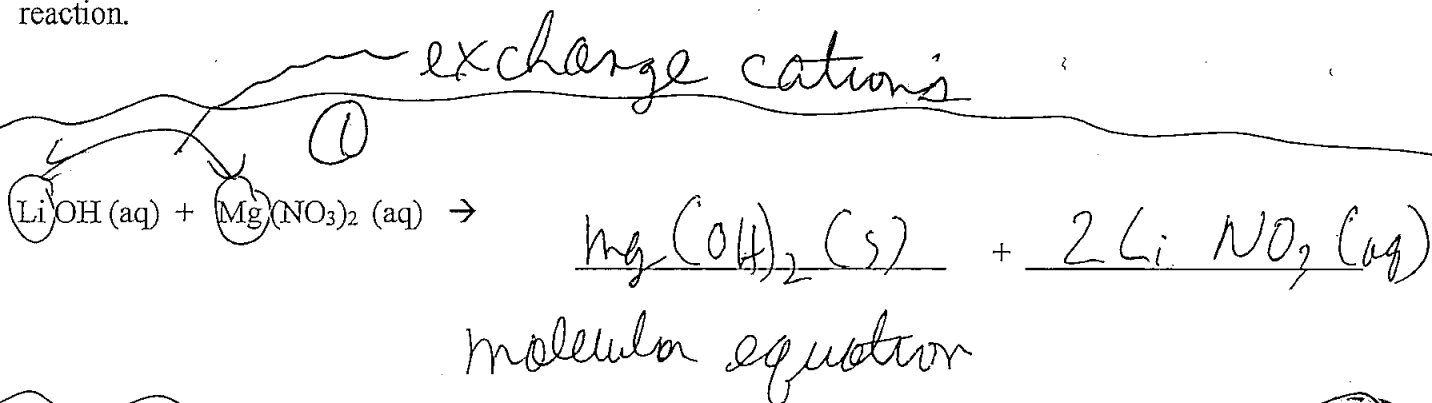 reaction.
exchange cations
①
LiOH (aq) + Mg(NO₃)₂ (aq) → Mg(OH)₂ (s) + 2Li NO₃ (aq)
molecular equation